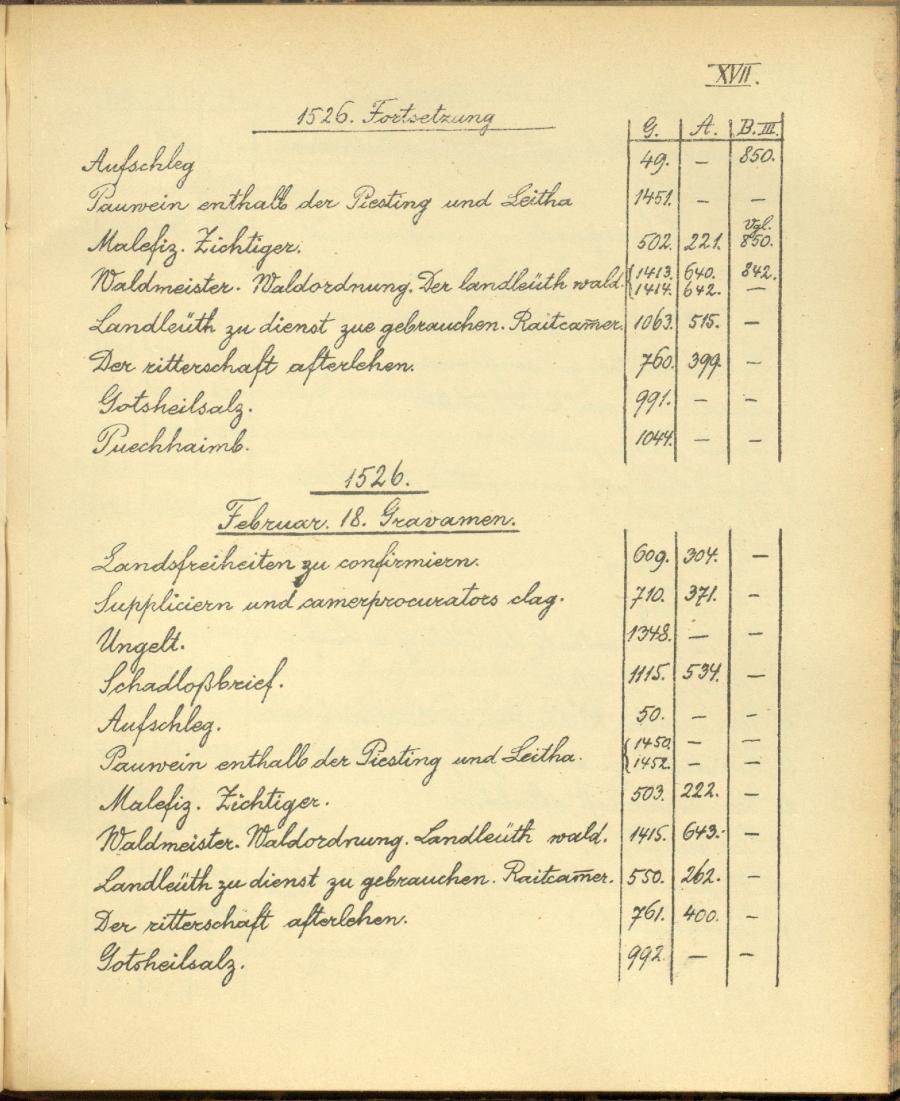 XVII.
1526. Fortsetzung
G. A. B. III.
Aufschleg 49. – 850.
Pauwein enthalb der Piesting und Leitha 1451. – –
Vgl.
Malefiz. Zichtiger. 502. 221. 850.
Waldmeister. Waldordnung. Der landleüth wald. { 1413. 640. 842.
1414. 642. –
Landleüth zu dienst zue gebrauchen. Raitcam̄er. 1063. 515. –
Der ritterschaft afterlehen. 760. 399. –
Gotsheilsalz. 991. – –
Puechhaimb. 1044. – –
1526.
Februar. 18. Gravamen.
Landsfreiheiten zu confirmiern. 609. 304. –
Suppliciern und camerprocurators clag. 710. 371. –
Ungelt. 1348. – –
Schadloßbrief. 1115. 534. –
Aufschleg. 50. – –
Pauwein enthalb der Piesting und Leitha. { 1450. – –
1452. – –
Malefiz. Zichtiger. 503. 222. –
Waldmeister. Waldordnung. Landleüth wald. 1415. 643. –
Landleüth zu dienst zu gebrauchen. Raitcam̄er. 550. 262. –
Der ritterschaft afterlehen. 761. 400. –
Gotsheilsalz. 992. – –